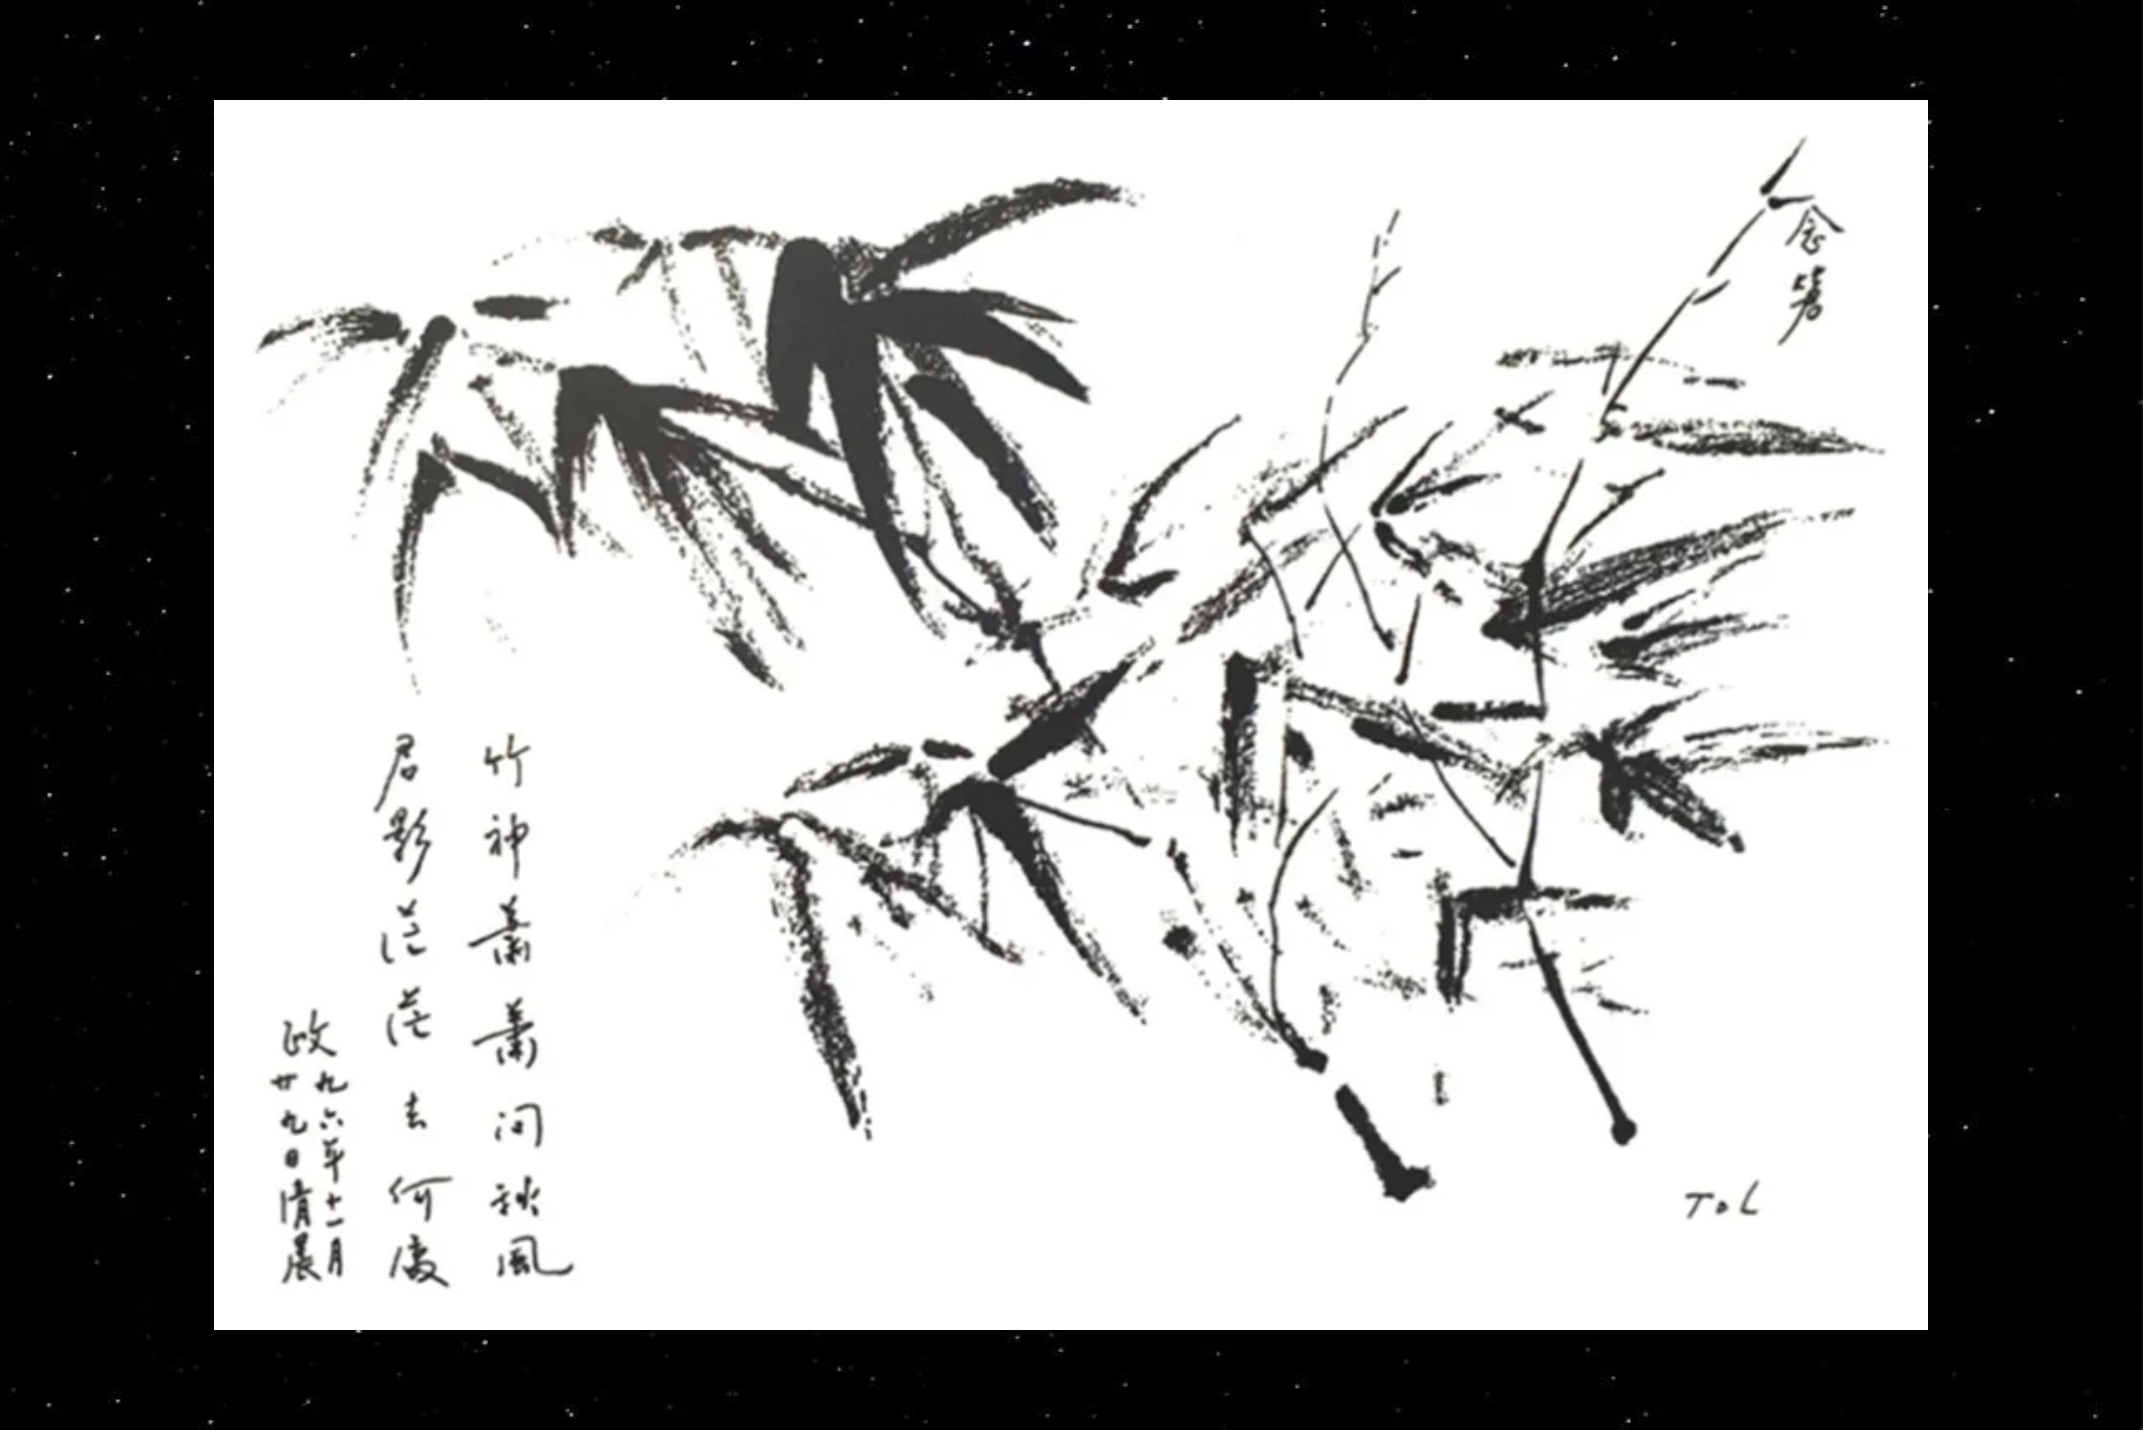 念䇹
竹神蕭蕭问秋風
君影茫茫去何處
政
九六年十一月
廿九日清晨
TDL